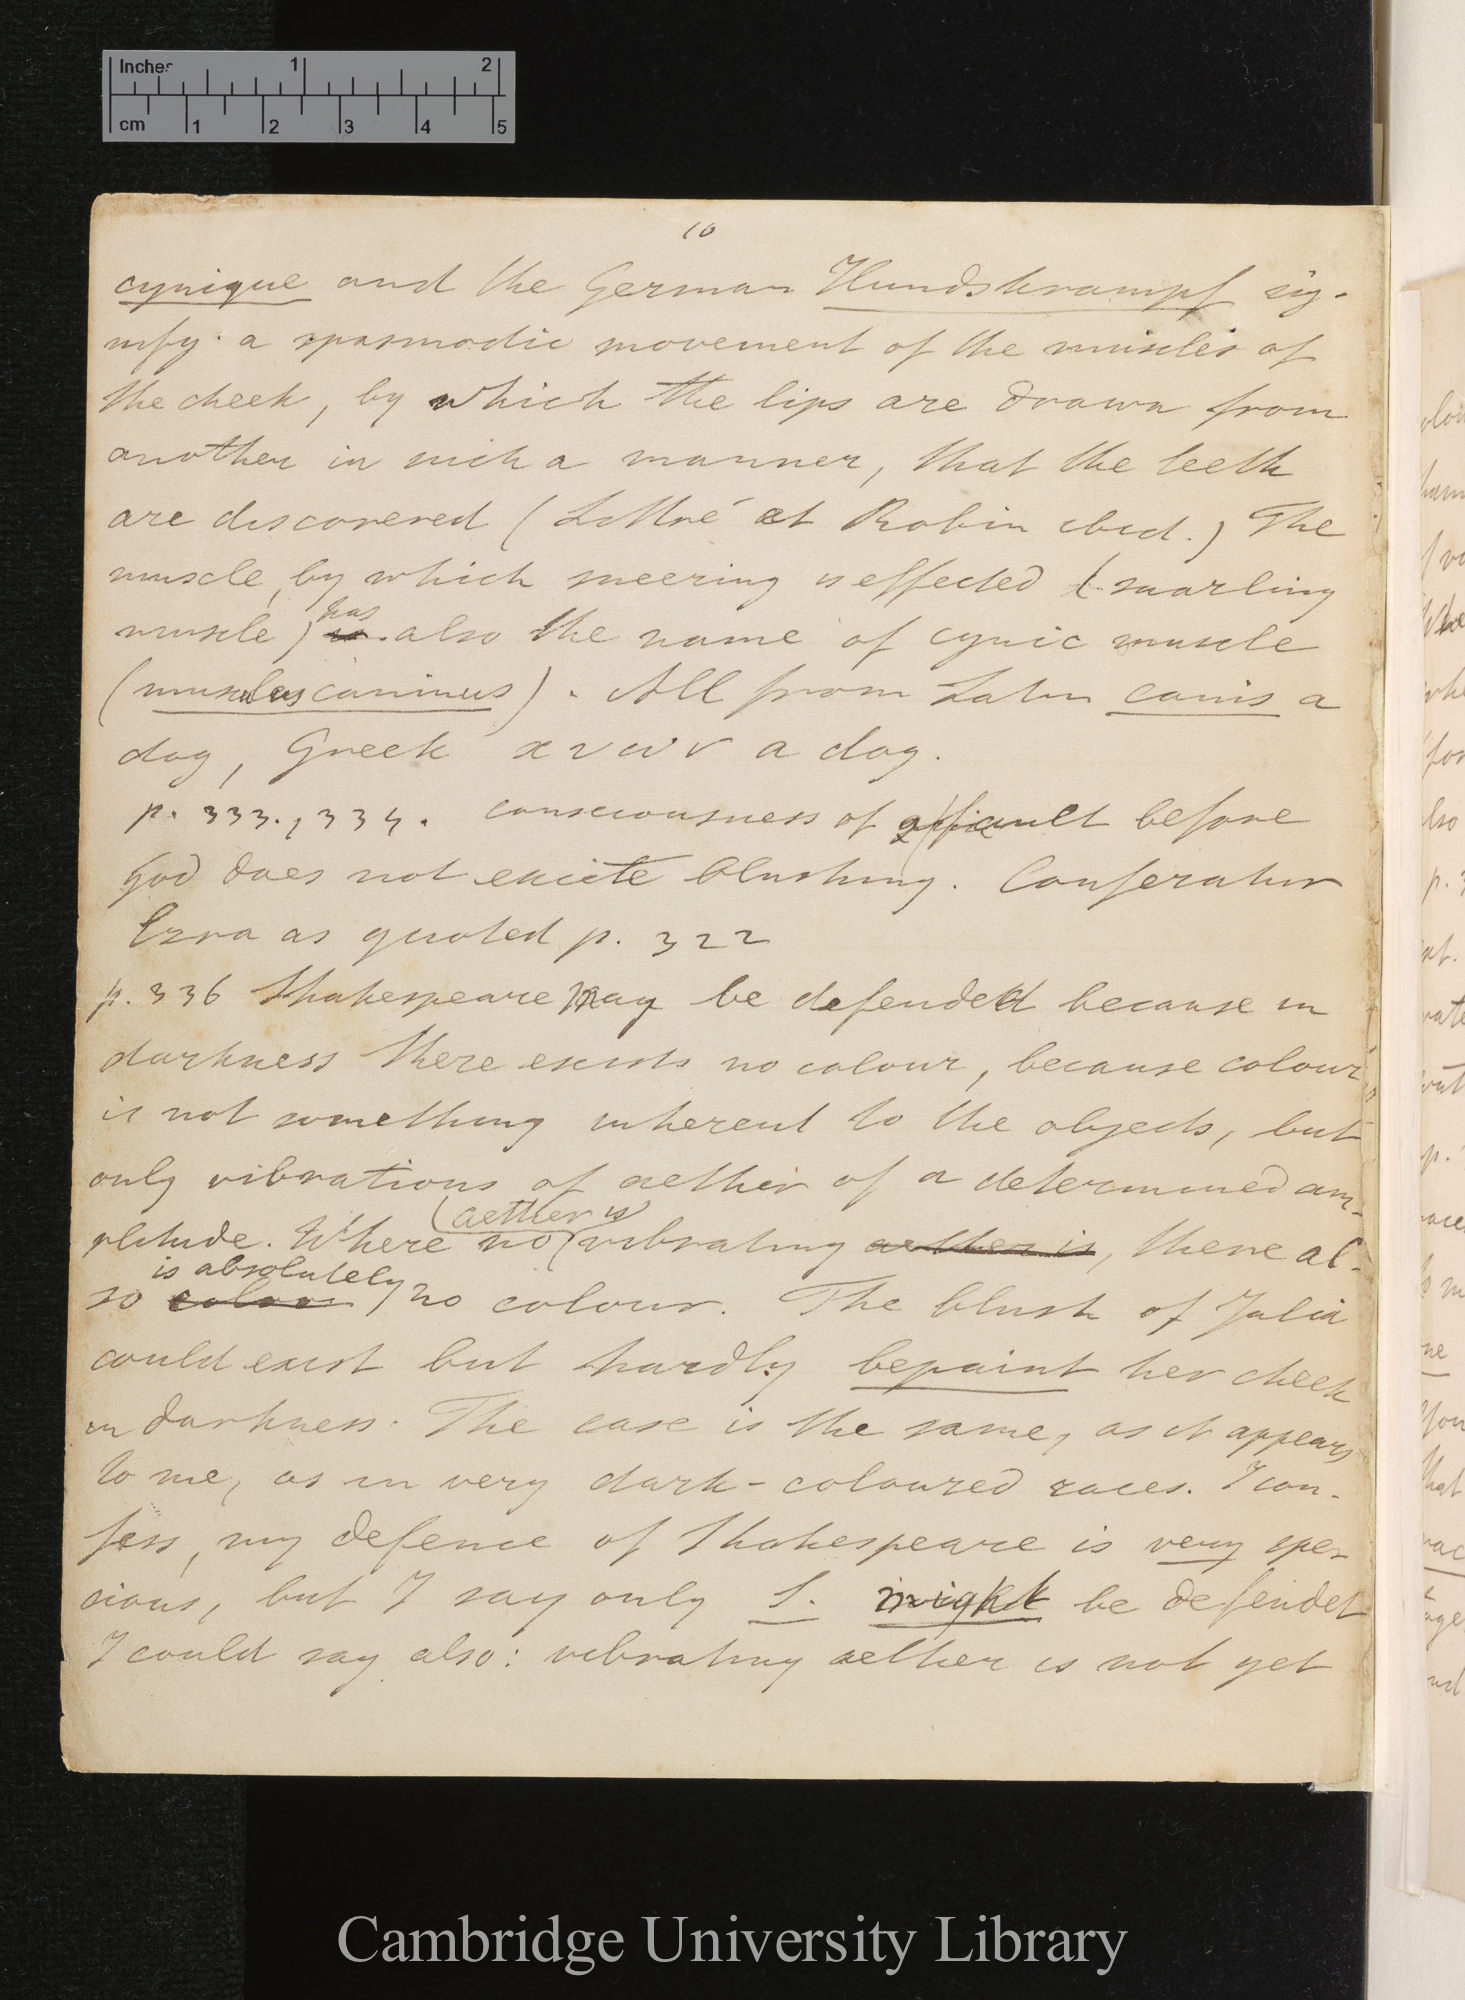 Inches 1 2
cm 1 2 3 4 5
10
cynique and the German Hundskrampf sig-
nify a spasmodic movement of the muscles of
the cheek, by which the lips are drawn from
another in such a manner, that the teeth
are discovered (Littré et Robin ibid.) The
muscle, by which sneering is effected (snarling
muscle) has is also the name of cynic muscle
(musculus caninus). All from Latin canis a
dog, Greek κυων a dog.
p. 333., 334. consciousness of fault before
God does not excite blushing. Conferatur
Ezra as quoted p. 322
p. 336 Shakespeare may be defended because in
darkness there exists no colour, because colour
is not something inherent to the objects, but
only vibrations of aether of a determined am-
plitude. Where no (aether is) vibrating aether is, there al-
so colour is absolutely no colour. The blush of Julia
could exist but hardly bepaint her cheek
in darkness. The case is the same, as it appears
to me, as in very dark-coloured races. I con-
fess, my defence of Shakespeare is very spe-
cious, but I say only S. might be defendet
I could say also: vibrating aether is not yet
Cambridge University Library